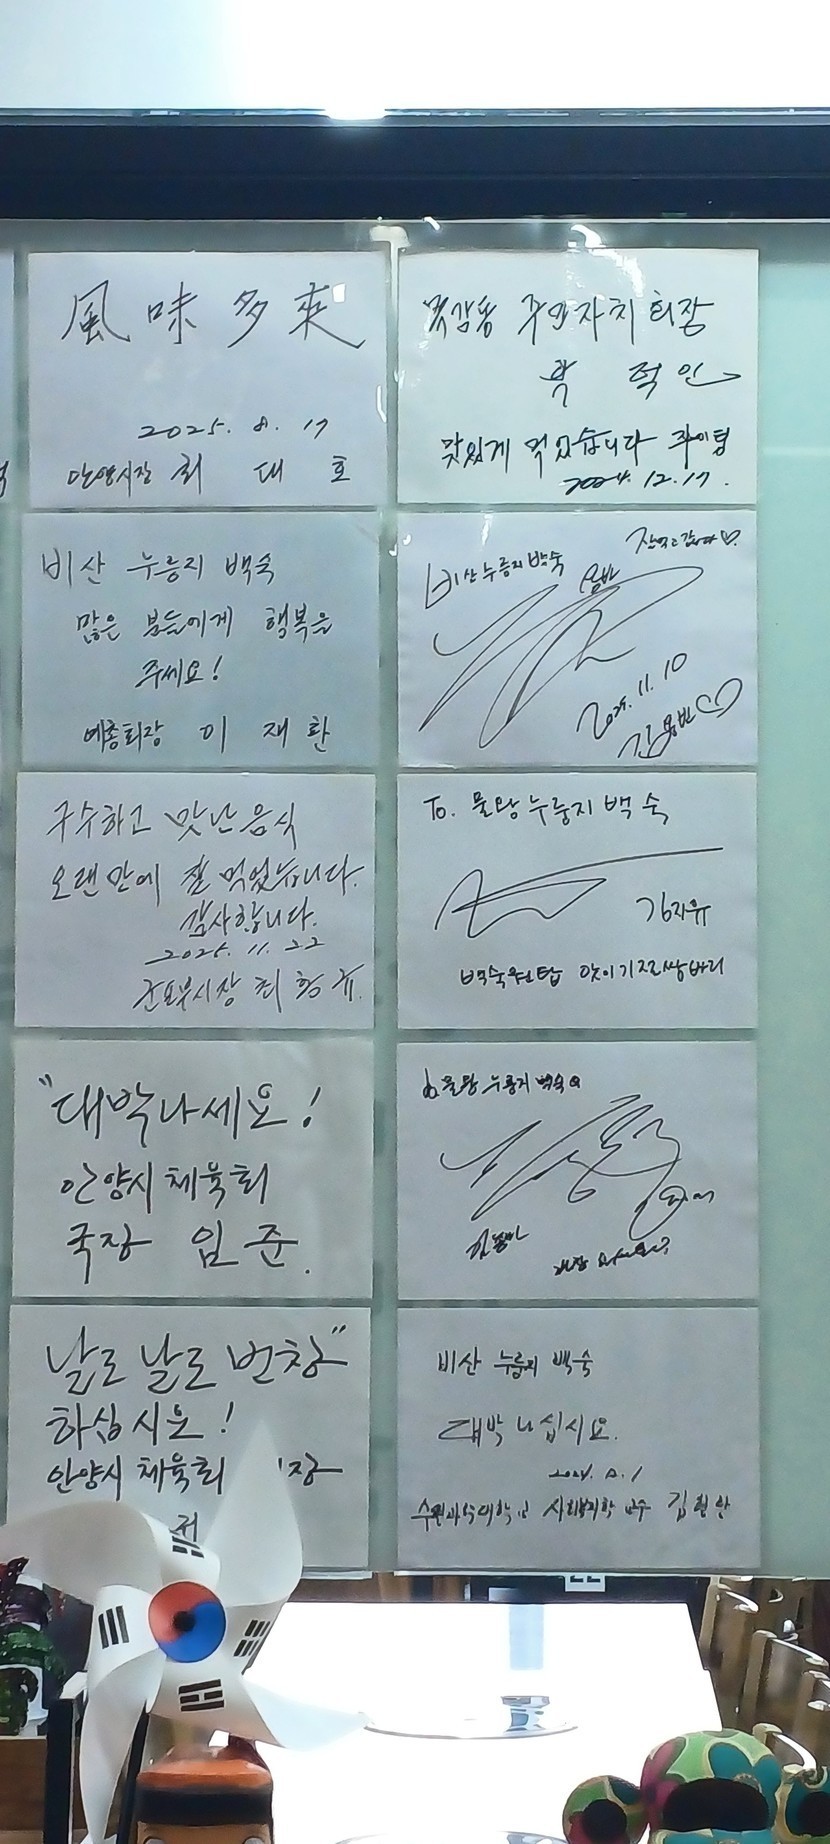 風味多來
2025. 8. 17
안양시장 최 대 호
비산 누룽지 백숙
많은 분들에게 행복을
주세요!
예총회장 이 재 환
구수하고 맛난 음식
오랜만에 잘 먹었습니다.
감사합니다.
2025. 11. 22
군포부시장 최 홍 규.
"대박나세요!
안양시 체육회
국장 임 준.
날로 날로 번창"
하십시요!
안양시 체육회
주민자치 회장
박
맛있게 먹었습니다
2024. 12. 17.
비산누룽지백숙
잘먹고갑니다♡.
2025. 11. 10
김용빈♡
To. 물왕누룽지 백숙
백숙원탑
물왕 누룽지 백숙
비산 누룽지 백숙
대박 나십시요.
수원과학대학교 교수 김